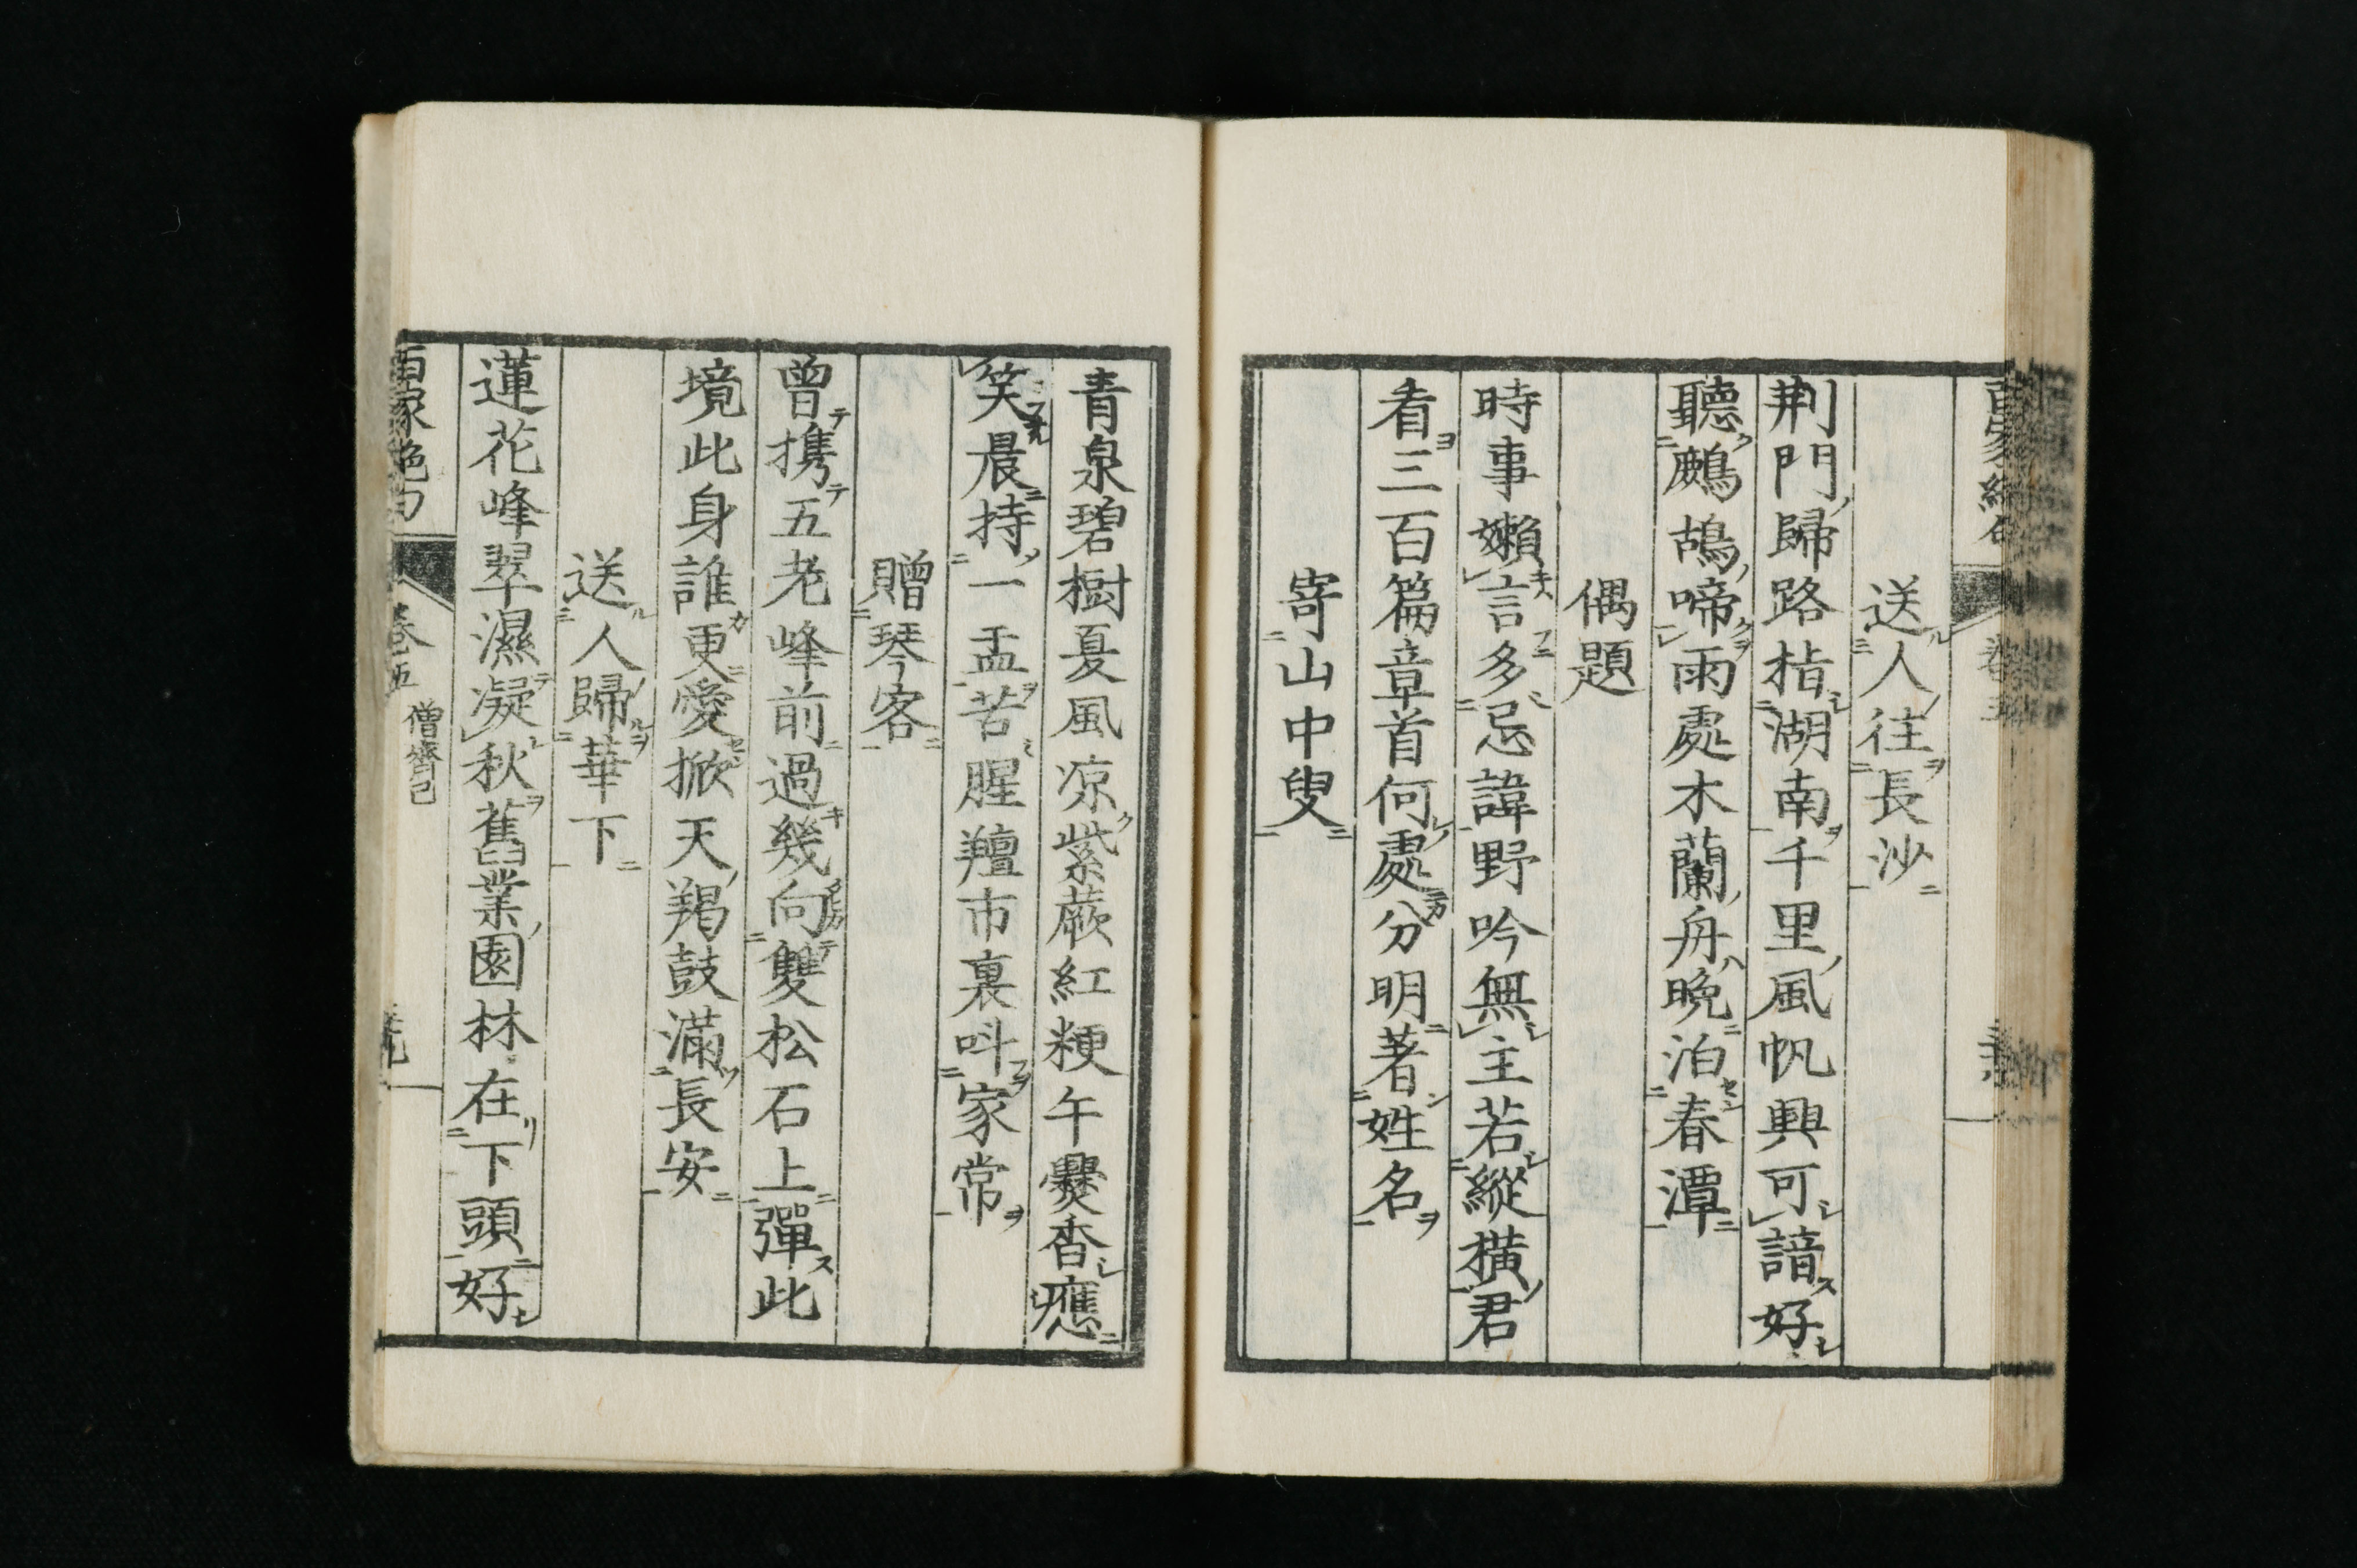 送人往長沙
荆門歸路指湖南千里風帆興可諳好
聽鷓鴣啼雨處木蘭舟晩泊春潭
偶題
時事嬾言多忌諱野吟無主若縱横君
看三百篇章首何處分明著姓名
寄山中叟
青泉碧樹夏風凉紫蕨紅粳午爨香應
笑晨持一盂苦腥羶市裏呌家常
贈琴客
曾携五老峰前過幾向雙松石上彈此
境此身誰更愛掀天羯鼓滿長安
送人歸華下
蓮花峰翠濕凝秋舊業園林在下頭好
百家絶句 卷五 僧齊己